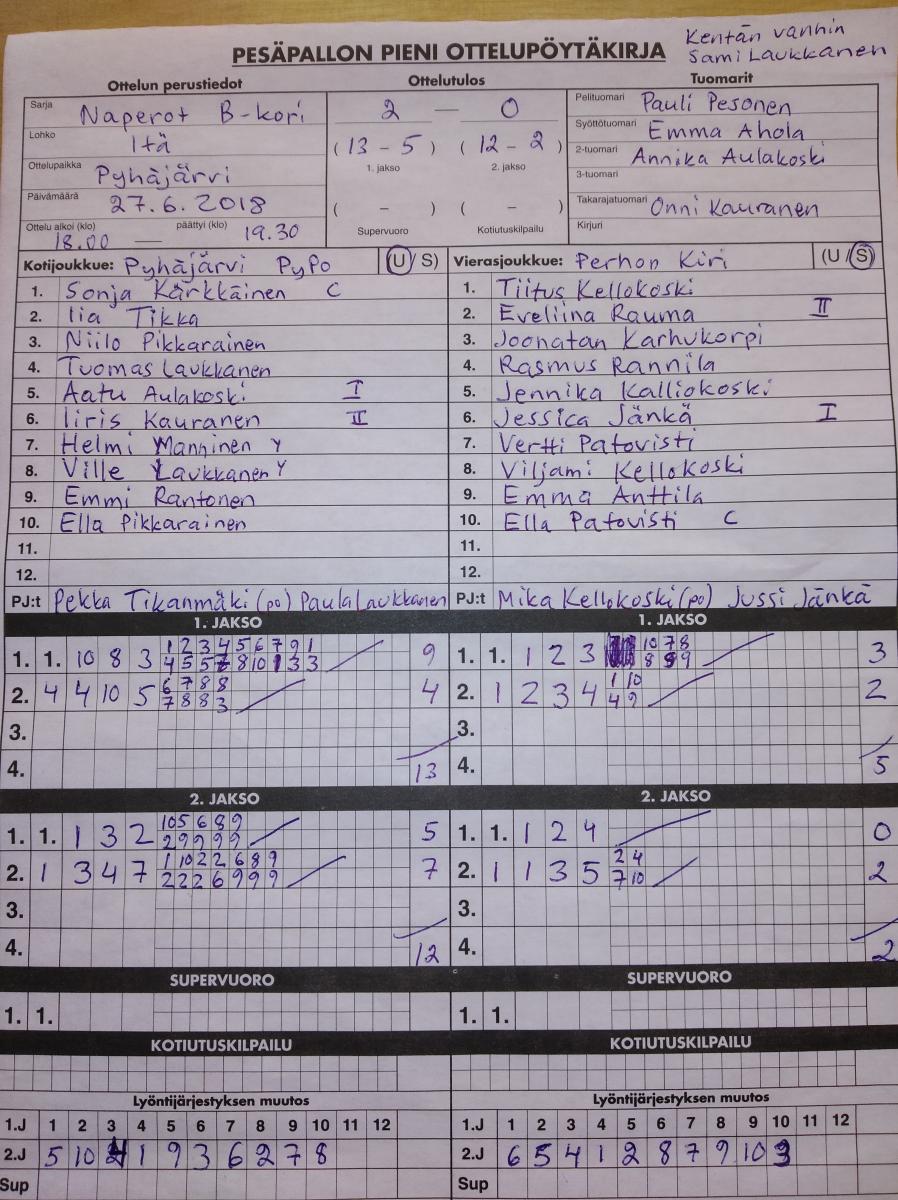 Kentän vanhin
Sami Laukkanen
PESÄPALLON PIENI OTTELUPÖYTÄKIRJA
Ottelun perustiedot
Sarja Naperot B-kori
Lohko Itä
Ottelupaikka Pyhäjärvi
Päivämäärä 27.6.2018
Ottelu alkoi (klo) päättyi (klo)
18.00 — 19.30
Ottelutulos
2 — 0
(13 - 5) (12 - 2)
1. jakso 2. jakso
( - ) ( - )
Supervuoro Kotiutuskilpailu
Tuomarit
Pelituomari Pauli Pesonen
Syöttötuomari Emma Ahola
2-tuomari Annika Aulakoski
3-tuomari
Takarajatuomari Onni Kauranen
Kirjuri
Kotijoukkue: Pyhäjärvi PyPo (U/S)
1. Sonja Kärkkäinen C
2. Iia Tikka
3. Niilo Pikkarainen
4. Tuomas Laukkanen
5. Aatu Aulakoski I
6. Iiris Kauranen II
7. Helmi Manninen Y
8. Ville Laukkanen Y
9. Emmi Rantonen
10. Ella Pikkarainen
11.
12.
PJ:t Pekka Tikanmäki (po) Paula Laukkanen
Vierasjoukkue: Perhon Kiri (U/S)
1. Tiitus Kellokoski
2. Eveliina Rauma II
3. Joonatan Karhukorpi
4. Rasmus Rannila
5. Jennika Kalliokoski
6. Jessica Jänkä I
7. Vertti Patovisti
8. Viljami Kellokoski
9. Emma Anttila
10. Ella Patovisti C
11.
12.
PJ:t Mika Kellokoski (po) Jussi Jänkä
1. JAKSO
1 2 3 4 5 6 7 9 1
1. 1. 10 8 3 4 5 5 7 8 10 1 3 3 9
6 7 8 8
2. 4 4 10 5 7 8 8 3 4
3.
4. 13
1. JAKSO
10 7 8
1. 1. 1 2 3 8 9 3
1 10
2. 1 2 3 4 4 9 2
3.
4. 5
2. JAKSO
10 5 6 8 9
1. 1. 1 3 2 2 9 9 9 9 5
1 10 2 2 6 8 9
2. 1 3 4 7 2 2 2 6 9 9 9 7
3.
4. 12
2. JAKSO
1. 1. 1 2 4 0
2 4
2. 1 1 3 5 7 10 2
3.
4. 2
SUPERVUORO
1. 1.
SUPERVUORO
1. 1.
KOTIUTUSKILPAILU
KOTIUTUSKILPAILU
Lyöntijärjestyksen muutos
1.J 1 2 3 4 5 6 7 8 9 10 11 12
2.J 5 10 4 1 9 3 6 2 7 8
Sup
Lyöntijärjestyksen muutos
1.J 1 2 3 4 5 6 7 8 9 10 11 12
2.J 6 5 4 1 2 8 7 9 10 3
Sup